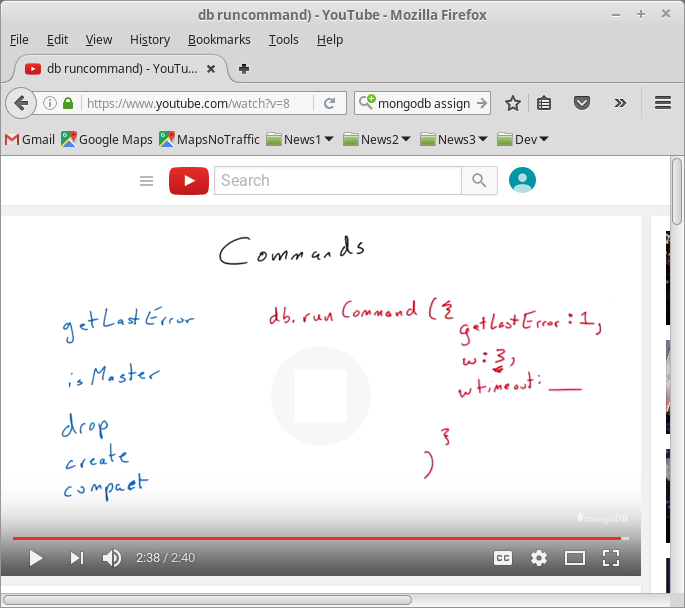 db runcommand) - YouTube - Mozilla Firefox
File Edit View History Bookmarks Tools Help
db runcommand) - YouTu...
https://www.youtube.com/watch?v=8
mongodb assign
Gmail Google Maps MapsNoTraffic News1 News2 News3 Dev
Search
Commands
getLastError
isMaster
drop
create
compact
db.runCommand ({
getLastError : 1,
w : 3,
wtimeout : ___
}
)
mongoDB
2:38 / 2:40
CC